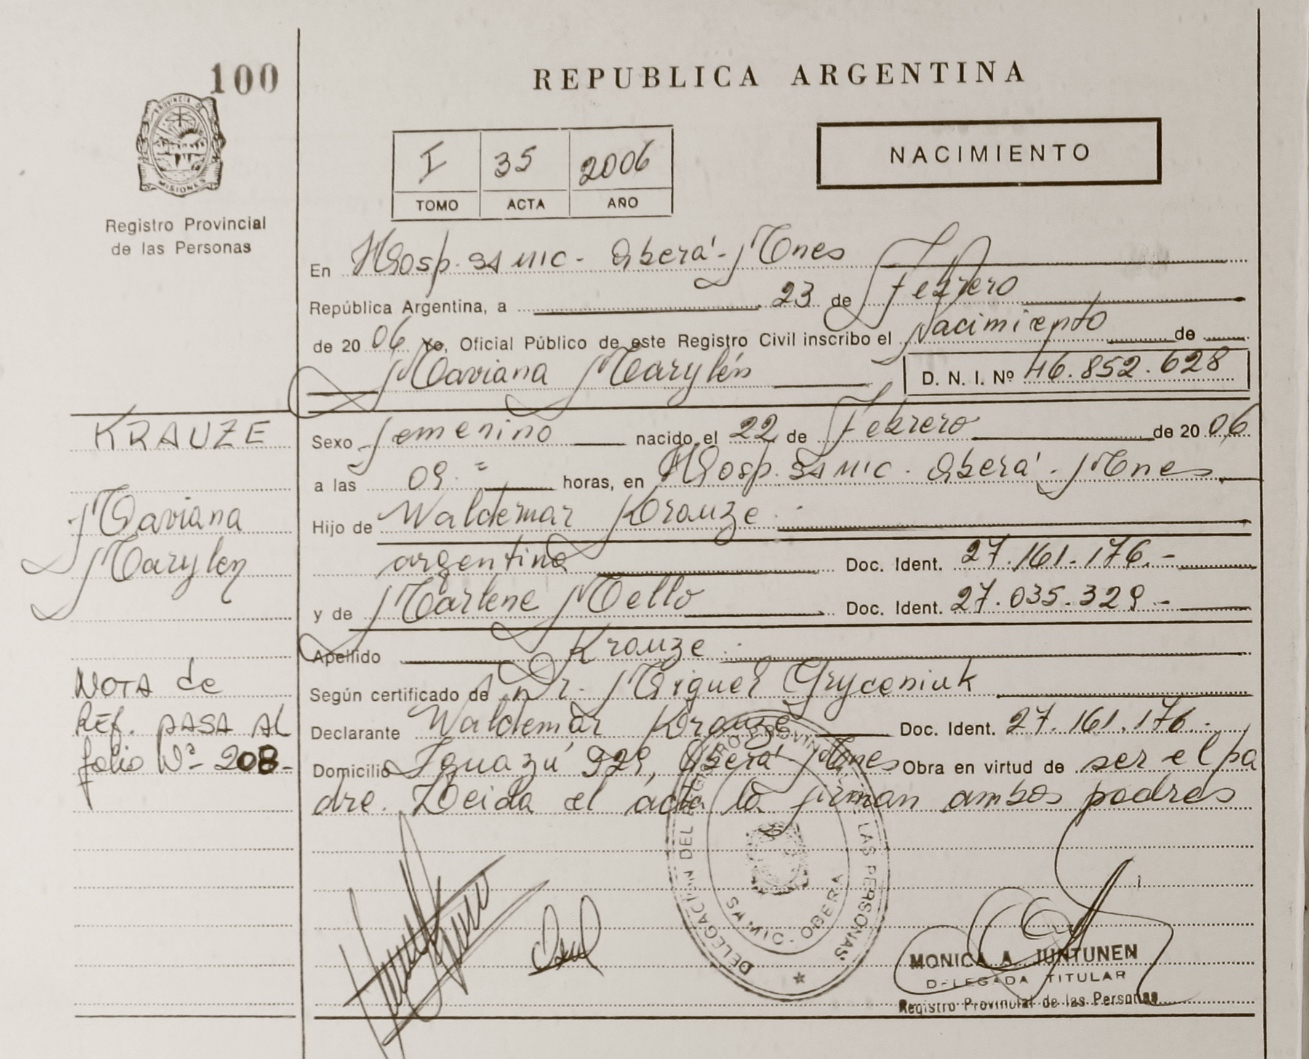 100
PROVINCIA DE
MISIONES
Registro Provincial
de las Personas
REPUBLICA ARGENTINA
I 35 2006
TOMO ACTA AÑO
NACIMIENTO
En Hosp. SAMIC - Oberá - Mnes
República Argentina, a 23 de Febrero
de 2006 Yo, Oficial Público de este Registro Civil inscribo el Nacimiento de
Maviana Marylén D. N. I. Nº 46.852.628
KRAUZE
Maviana
Marylén
Sexo femenino nacido el 22 de Febrero de 2006
a las 09 horas, en Hosp. SAMIC - Oberá - Mnes
Hijo de Waldemar Krauze
argentino Doc. Ident. 27.161.176.-
y de Marlene Mello Doc. Ident. 27.035.329-
Apellido Krauze
NOTA de
REF. PASA AL
folio Nº 208-
Según certificado de Dr. Miguel Gryconiuk
Declarante Waldemar Krauze Doc. Ident. 27.161.176.
Domicilio Iguazú 929, Oberá Mnes Obra en virtud de ser el pa
dre. Leida el acta la firman ambos padres
DELEGACION DEL REGISTRO PROVINCIAL DE LAS PERSONAS
SAMIC - OBERA
MONICA A. JUNTUNEN
DELEGADA TITULAR
Registro Provincial de las Personas